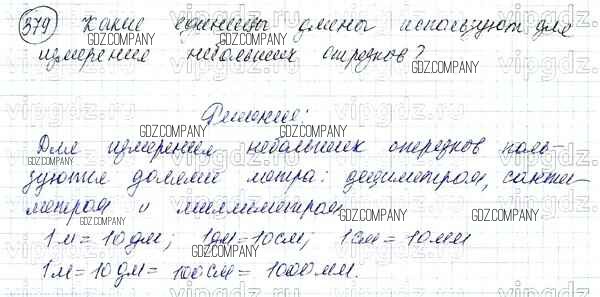 379 Какие единицы длины используют для
измерения небольших отрезков?
Решение:
Для измерения небольших отрезков поль-
зуются долями метра: дециметром, санти-
метром и миллиметром
1 м = 10 дм; 1 дм = 10 см; 1 см = 10 мм
1 м = 10 дм = 100 см = 1000 мм.